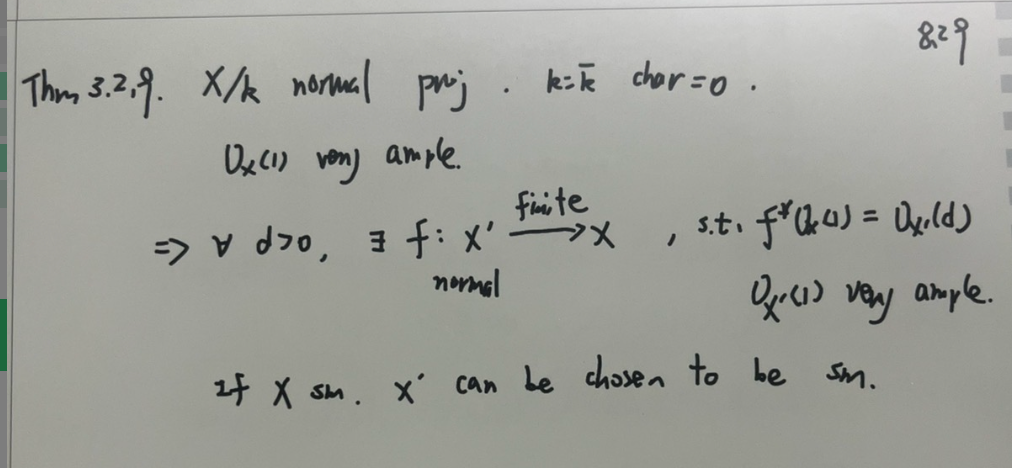 8.29
Thm 3.2.9. X/k normal proj. k=k̄ char=0.
O_X(1) very ample.
⇒ ∀ d>0, ∃ f: X' —finite→ X, s.t. f*O_X(1) = O_X'(d)
normal O_X'(1) very ample.
If X sm. X' can be chosen to be sm.